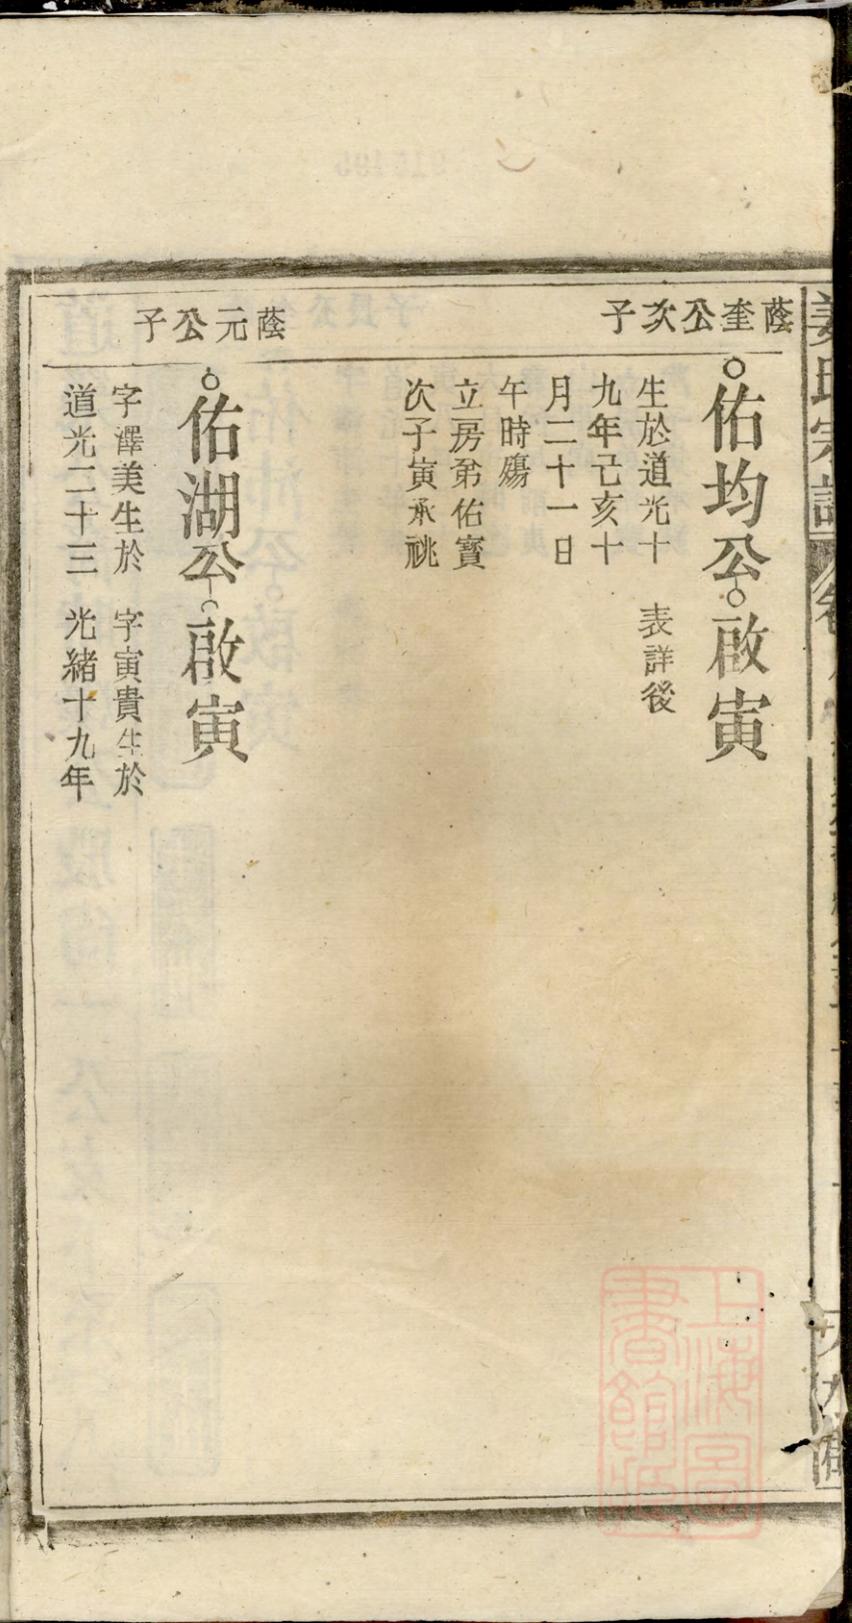 姜氏宗譜
蔭奎公次子
佑均公
生於道光十
九年己亥十
月二十一日
午時殤
立房弟佑寳
次子寅承祧
啟寅
表詳後
蔭元公子
佑湖公
字澤美生於
道光二十三
啟寅
字寅貴生於
光緒十九年
上海圖
書館臧